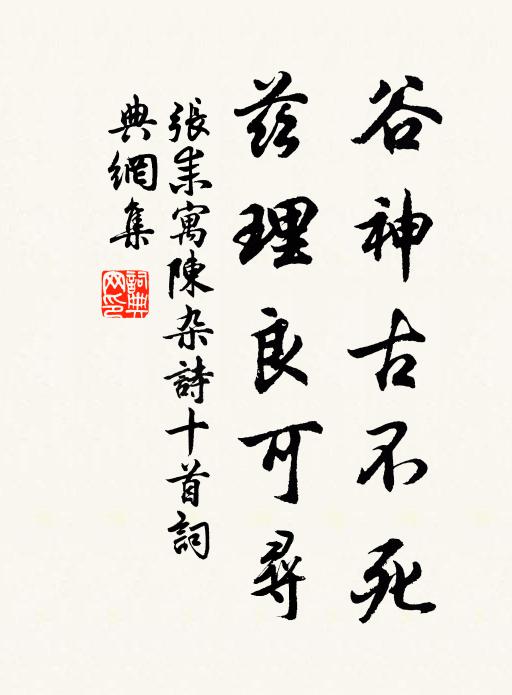 谷神古不死
茲理良可尋
張耒寓陳杂詩十首詞
典網集
詞典
网印